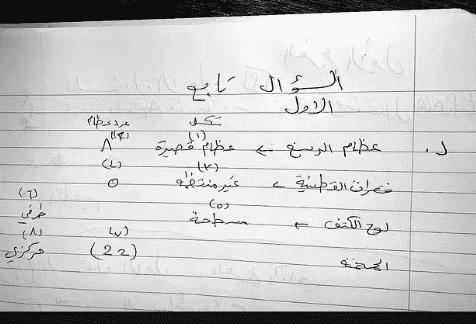 السؤال تابع
الاول
شكل عدد عظام
د. عظام الرسغ ← عظام قصيرة (١) ٨ (٢)
فقرات القطنية ← غير منتظمة (٣) ٥ (٤)
لوح الكتف ← مسطحة (٥) طرفي (٦)
الجمجمة (22) (٧) مركزي (٨)